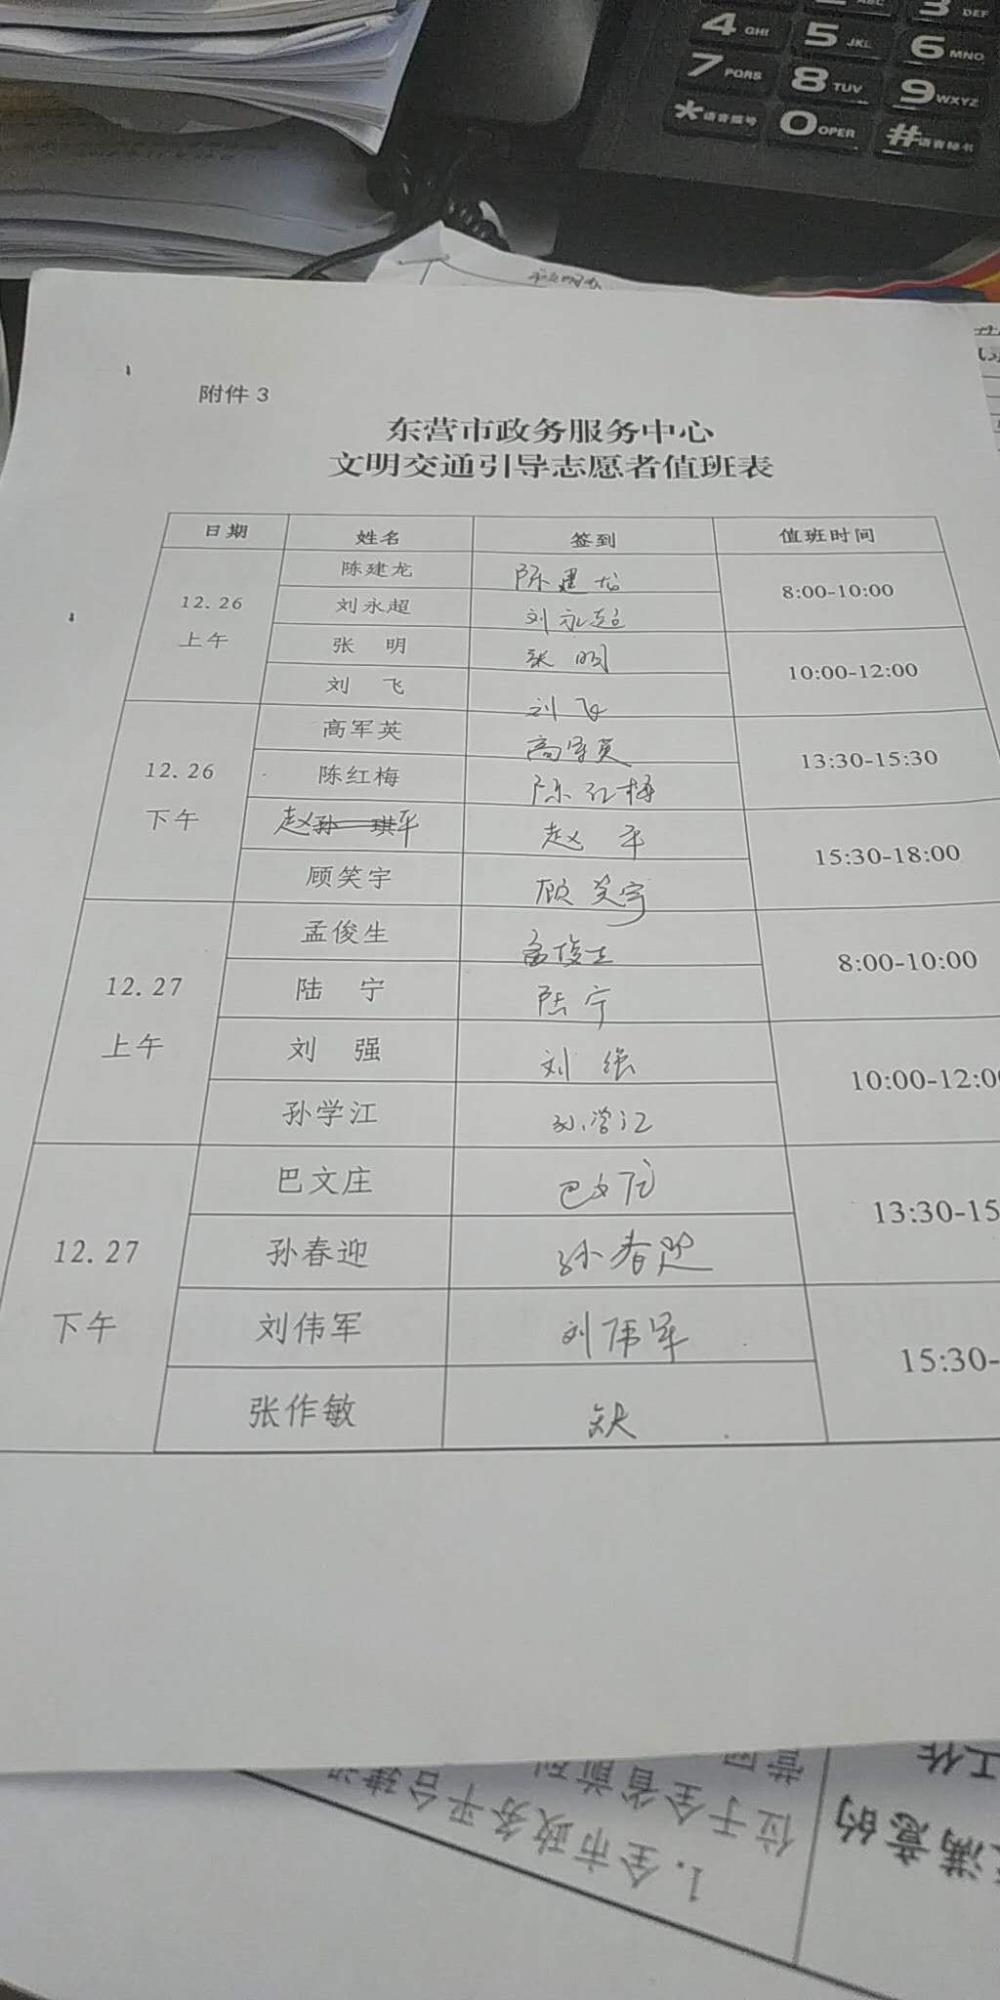 3 DEF
4 GHI 5 JKL 6 MNO
7 PQRS 8 TUV 9 WXYZ
* 语音拨号 0 OPER # 语音秘书
附件 3
东营市政务服务中心
文明交通引导志愿者值班表
日期 姓名 签到 值班时间
12.26 上午 陈建龙 陈建龙 8:00-10:00
刘永超 刘永超
张 明 张 明 10:00-12:00
刘 飞 刘 飞
12.26 下午 高军英 高军英 13:30-15:30
陈红梅 陈红梅
赵孙 琪平 赵 平 15:30-18:00
顾笑宇 顾笑宇
12.27 上午 孟俊生 孟俊生 8:00-10:00
陆 宁 陆宁
刘 强 刘 强 10:00-12:00
孙学江 孙学江
12.27 下午 巴文庄 巴文庄 13:30-15
孙春迎 孙春迎
刘伟军 刘伟军 15:30-
张作敏 缺
工作
满意的
营网
位于全省前列
1.全市政务平台建设